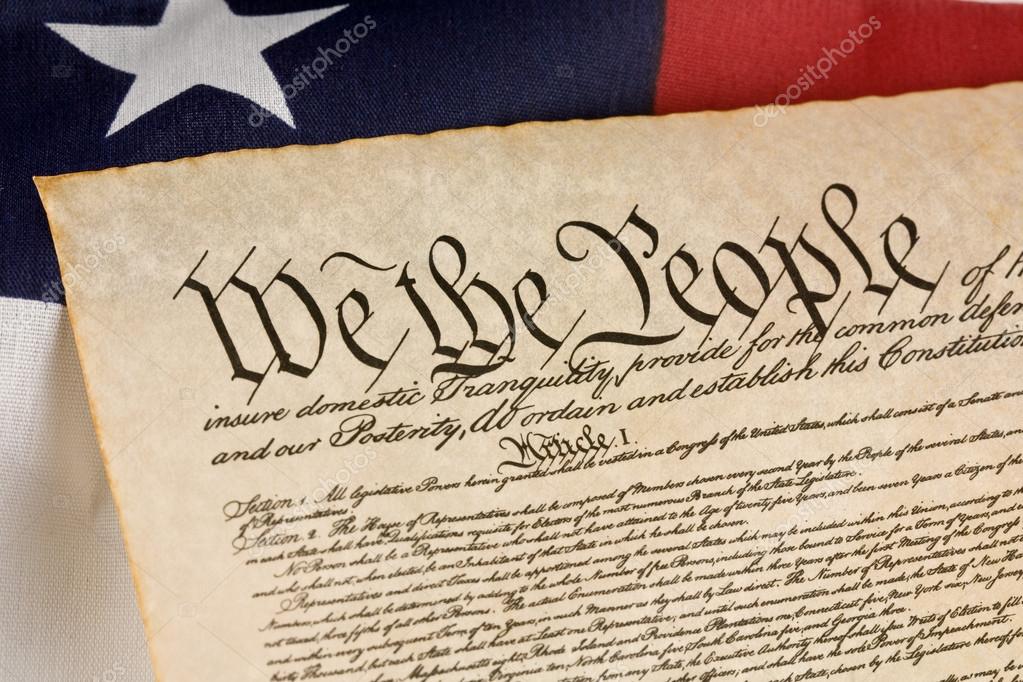 We the People of
insure domestic Tranquility, provide for the common defen
and our Posterity, do ordain and establish this Constitutio
Article. I.
Section. 1. All legislative Powers herein granted shall be vested in a Congress of the United States, which shall consist of a Senate and
of Representatives.
Section. 2. The House of Representatives shall be composed of Members chosen every second Year by the People of the several States, an
in each State shall have the Qualifications requisite for Electors of the most numerous Branch of the State Legislature.
No Person shall be a Representative who shall not have attained to the Age of twenty five Years, and been seven Years a Citizen of the
and who shall not, when elected, be an Inhabitant of that State in which he shall be chosen.
Representatives and direct Taxes shall be apportioned among the several States which may be included within this Union, according to th
Numbers, which shall be determined by adding to the whole Number of free Persons, including those bound to Service for a Term of Years, and e
not taxed, three fifths of all other Persons. The actual Enumeration shall be made within three Years after the first Meeting of the Congress
and within every subsequent Term of ten Years, in such Manner as they shall by Law direct. The Number of Representatives shall not
thirty Thousand, but each State shall have at Least one Representative; and until such enumeration shall be made, the State of New Ha
Massachusetts eight, Rhode Island and Providence Plantations one, Connecticut five, New York six, New Jersey
Virginia ten, North Carolina five, South Carolina five, and Georgia three.
from any State, the Executive Authority thereof shall issue Writs of Election to fill
other Officers; and shall have the sole Power of Impeachment.
State, chosen by the Legislature thereof, fo
depositphotos
depositphotos
depositphotos
depositphotos
depositphotos
depositphotos